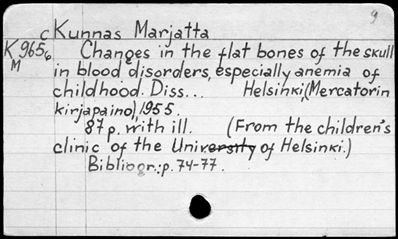 9
c Kunnas Marjatta
K 9656 Changes in the flat bones of the skull
M in blood disorders, especially anemia of
childhood. Diss... Helsinki, (Mercatorin
kirjapaino), 1955.
87 p. with ill. (From the children's
clinic of the University of Helsinki.)
Bibliogr.: p. 74-77.